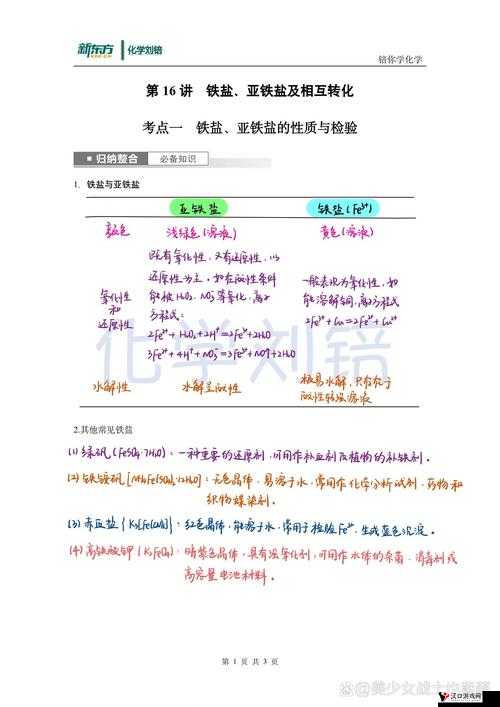 新东方 化学刘锫 锫你学化学
XDF.CN
第 16 讲 铁盐、亚铁盐及相互转化
考点一 铁盐、亚铁盐的性质与检验
归纳整合 必备知识
1. 铁盐与亚铁盐
亚铁盐 铁盐(Fe³⁺)
颜色 浅绿色(溶液) 黄色(溶液)
既有氧化性，又有还原性，以
还原性为主，如在酸性条件 一般表现为氧化性，如
氧化性 能被H₂O₂、NO₃⁻等氧化，离子 能溶解铜，离子方程式
和 方程式： 2Fe³⁺+Cu=2Fe²⁺+Cu²⁺
还原性 2Fe²⁺+H₂O₂+2H⁺=2Fe³⁺+2H₂O
3Fe²⁺+4H⁺+NO₃⁻=3Fe³⁺+NO↑+2H₂O
化学刘锫
水解性 水解呈酸性 极易水解，只存在于
酸性较强溶液
2.其他常见铁盐
(1) 绿矾(FeSO₄·7H₂O)：一种重要的还原剂，可用作补血剂及植物的补铁剂。
(2) 铁铵矾[NH₄Fe(SO₄)₂·12H₂O]：无色晶体，易溶于水，常用作化学分析试剂、药物和
织物媒染剂。
(3) 赤血盐{K₃[Fe(CN)₆]}：红色晶体，能溶于水，常用于检验Fe²⁺，生成蓝色沉淀。
(4) 高铁酸钾(K₂FeO₄)：暗紫色晶体，具有强氧化剂，可用作水体的杀菌、消毒剂或
高容量电池材料。
第 1 页 共 3 页
汉口游戏网